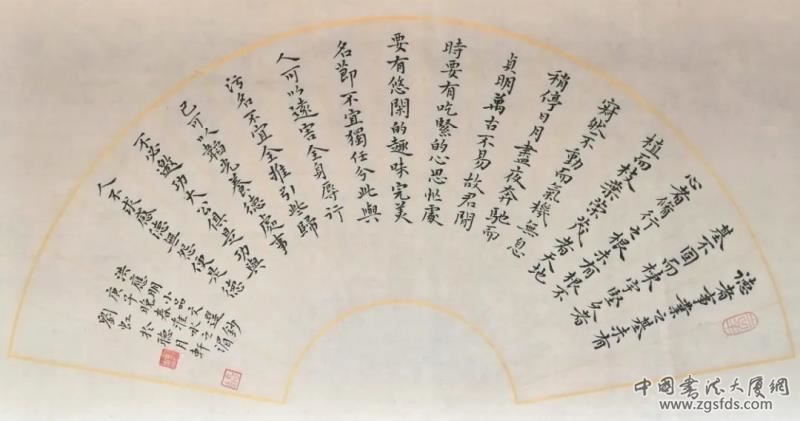 德者事業之基未有
基不固而棟宇堅久者
心者脩行之根未有根不
植而枝葉榮茂者天地
寂然不動而氣機無息
稍停日月晝夜奔馳而
貞明萬古不易故君閒
時要有吃緊的心思忙處
要有悠閑的趣味完美
名節不宜獨任分此與
人可以遠害全身辱行
污名不宜全推引些歸
己可以韜光養德處事
不必邀功大公俱是功與
人不求感德無怨便是德
洪應明小品文選鈔
庚子晚春淮水之湄
劉虹於聽月軒
中國書法大廈網
www.zgsfds.com